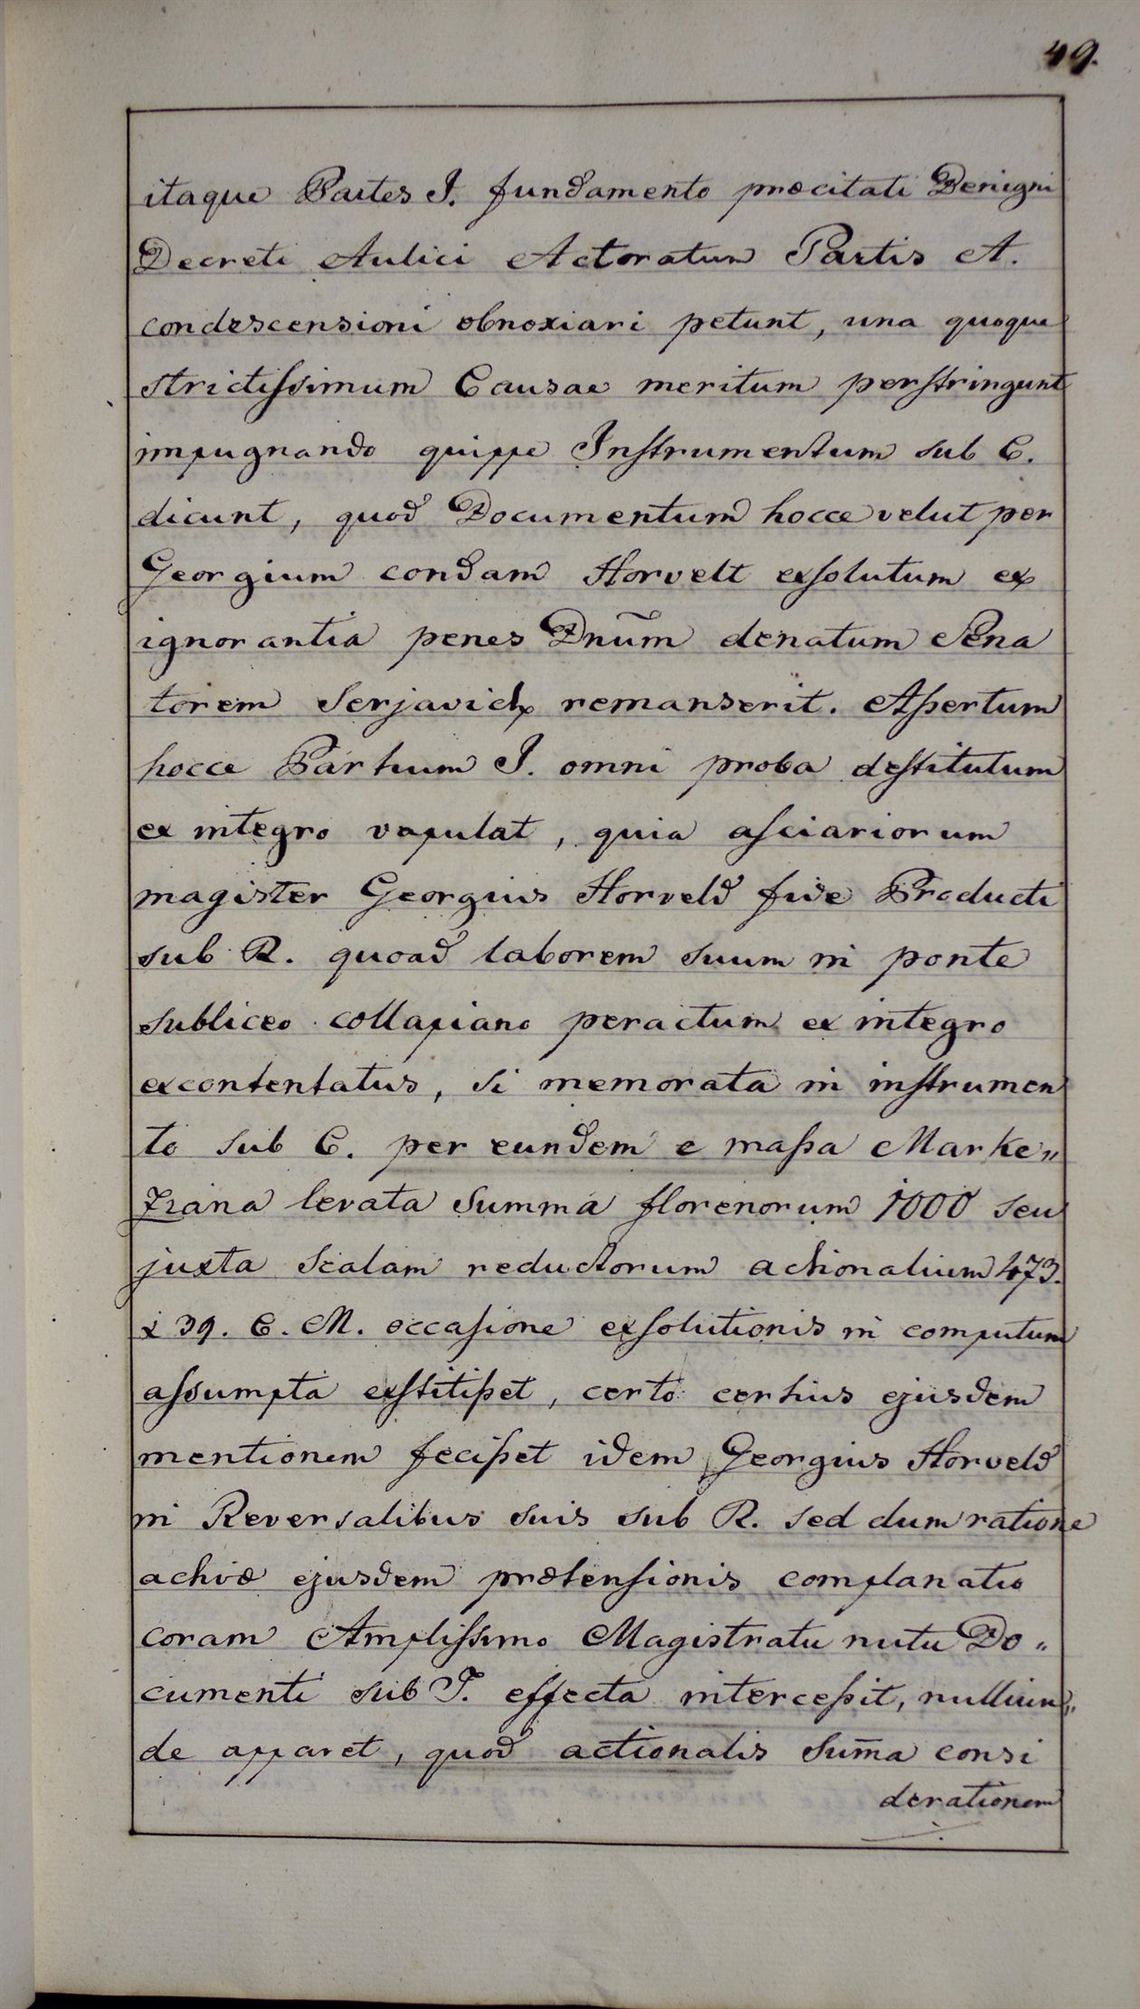 49.
itaque Partes I. fundamento præcitati Benigni
Decreti Aulici Actoratum Partis A.
condescensioni obnoxiari petunt, una quoque
strictissimum Causae meritum perstringunt
impugnando quippe Instrumentum sub C.
dicunt, quod Documentum hocce velut per
Georgium condam Horvelt exsolutum ex
ignorantia penes Dnum̃ denatum Sena
torem Serjavich remanserit. Assertum
hocce Partium I. omni proba destitutum
ex integro vapulat, quia asciariorum
magister Georgius Horveld fide Producti
sub R. quoad laborem suum in ponte
subliceo collapiano peractum ex integro
excontentatus, si memorata in instrumen
to sub C. per eundem e massa Marke„
ziana levata Summa florenorum 1000 seu
juxta Scalam reductorum actionalium 473.
x 39. C. M. occasione exsolutionis in computum
assumpta exstitisset, certo certius ejusdem
mentionem fecisset idem Georgius Horveld
in Reversalibus suis sub R. sed dum ratione
activæ ejusdem prætensionis complanatio
coram Amplissimo Magistratu nutu Do„
cumenti sub T. effecta intercessit, nullim„
de apparet, quod actionalis Sum̃a consi
derationem